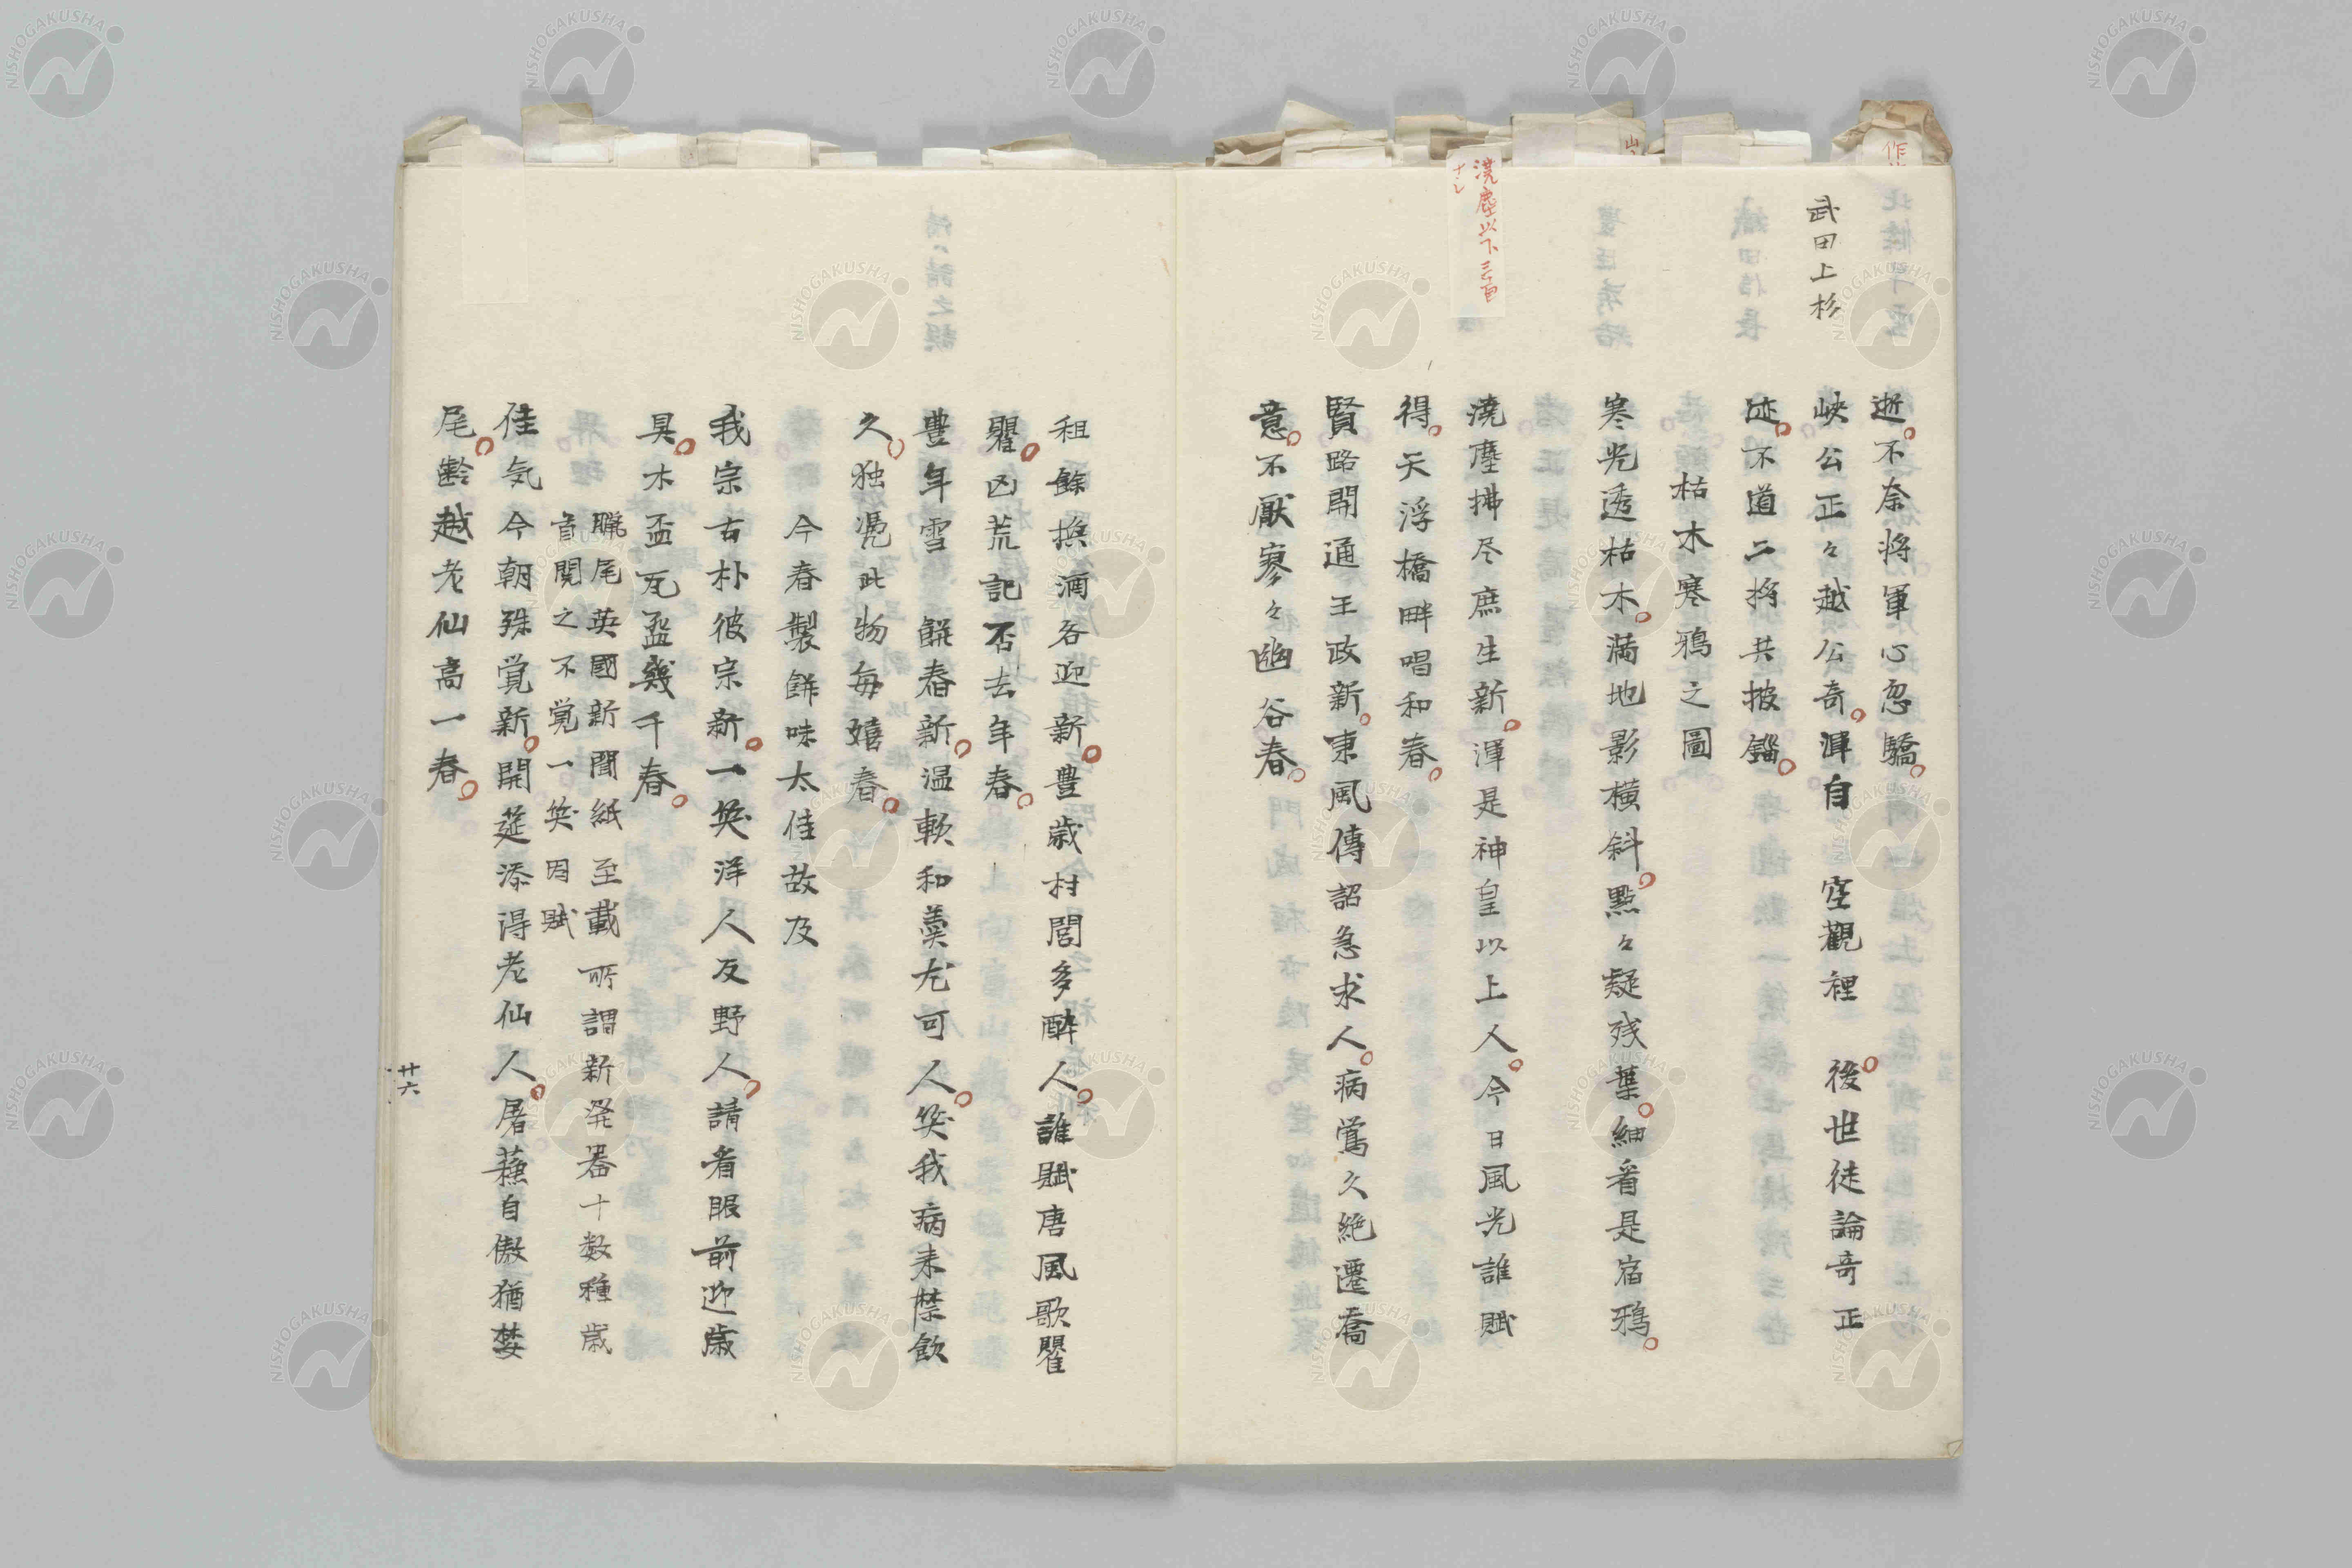 武田上杉
逝不奈将軍心忽驕
峽公正々越公奇渾自空觀裡後世徒論奇正
迹不道二将共披緇
枯木寒鴉之圖
寒光透枯木満地影横斜點々疑残葉細看是宿鴉
澆塵以下三首
澆塵拂尽庶生新渾是神皇以上人今日風光誰賦
得天浮橋畔唱和春
賢路開通王政新東風傳詔急求人病鶯久絶遷喬
意不厭寥々幽谷春
租餘換酒各迎新豊歳村閭多酔人誰賦唐風歌瞿
瞿凶荒記否去年春
豊年雪餅春新温軟和羹尤可人笑我病来禁飲
久独凭此物毎嬉春
今春製餅味太佳故及
我宗古朴彼宗新一笑洋人反野人請看眼前迎歳
具木盃瓦盆幾千春
臘尾英國新聞紙至載所謂新発器十数種歳
首閲之不覚一笑因賦
佳気今朝殊覚新開莚添得老仙人屠蘓自傲猶婪
尾齢越老仙高一春
廿六